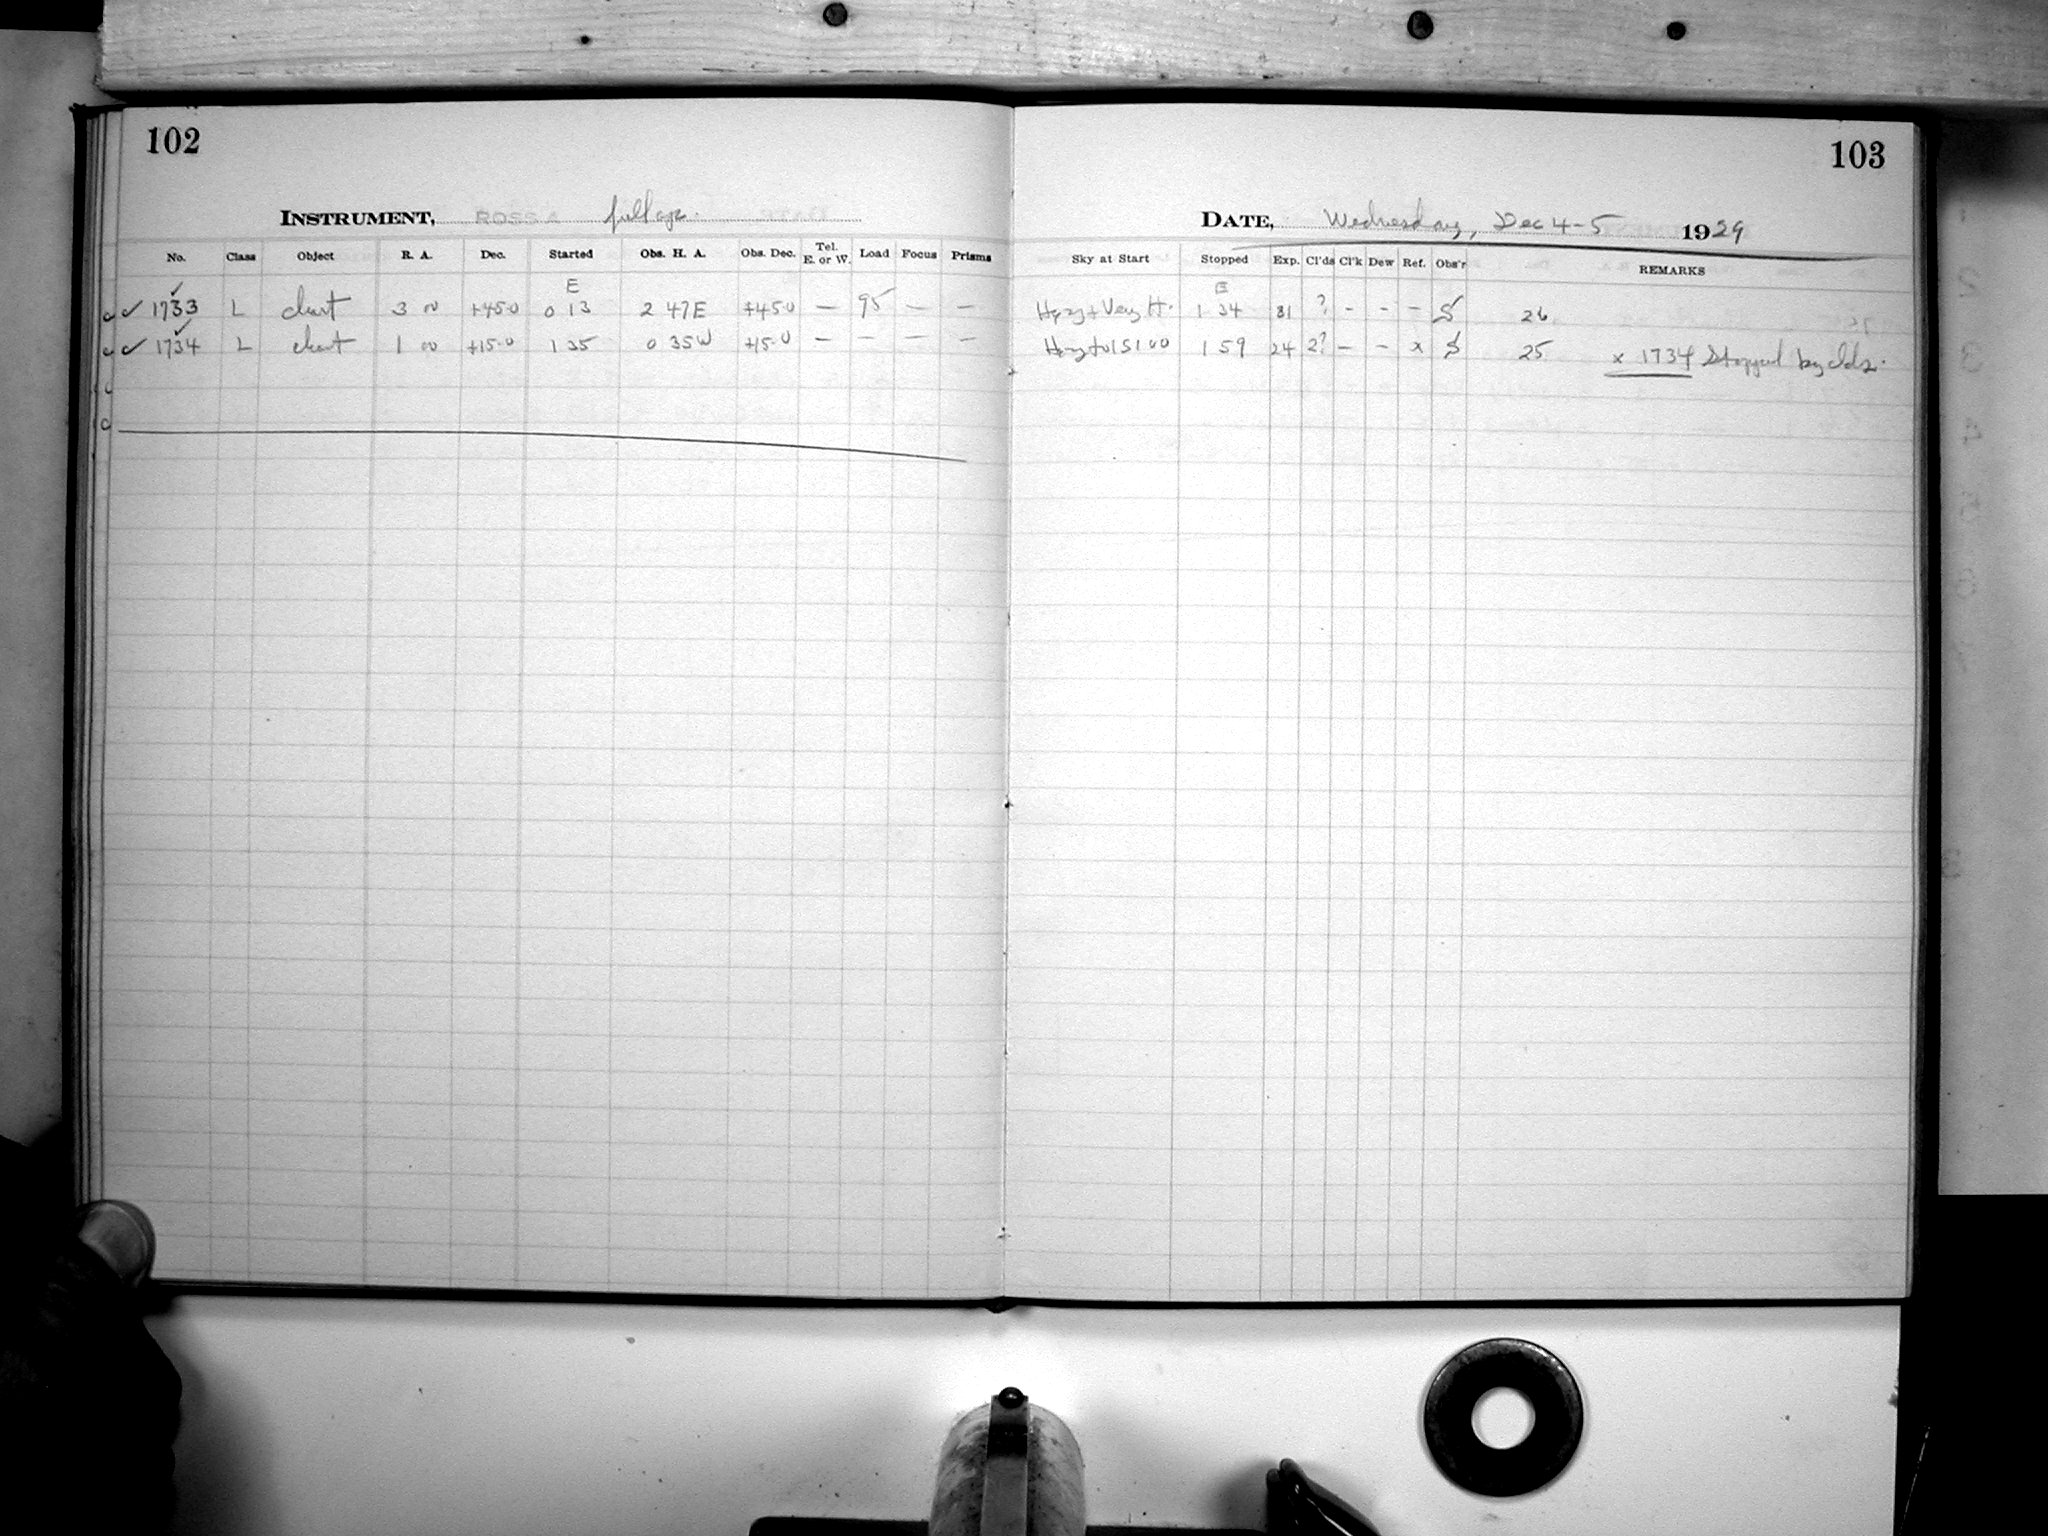 102
103
INSTRUMENT, ROSS A full ap.
DATE, Wednesday, Dec 4-5 1929
No. Class Object R. A. Dec. Started Obs. H. A. Obs. Dec. Tel. E. or W. Load Focus Prisms Sky at Start Stopped Exp. Cl'ds Cl'k Dew Ref. Obs'r REMARKS
E E
✓ 1733 L chart 3 00 +45.0 0 13 2 47E +45.0 — 95 — — Hazy + Very H. 1 34 81 ? - - - S 26
✓ 1734 L chart 1 00 +15.0 1 35 0 35W +15.0 — — — — Hazy 1 59 24 2? — — x S 25 x 1734 Stopped by clds.